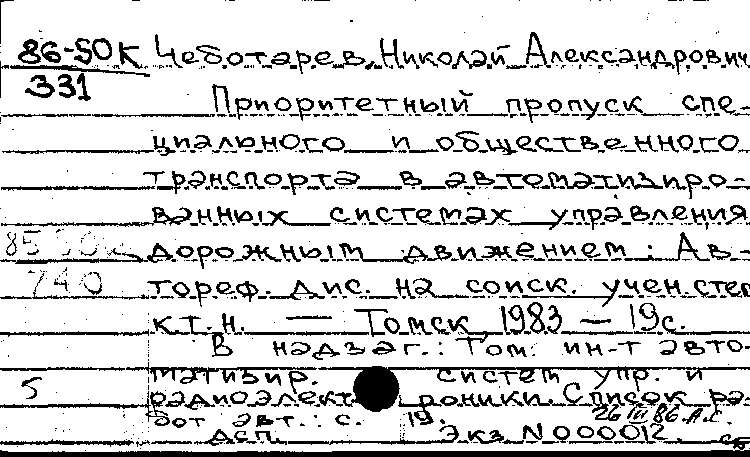 86-50К Чеботарев, Николай Александрович
331
Приоритетный пропуск спе-
циального и общественного
транспорта в автоматизиро-
ванных системах управления
дорожным движением: Ав-
740
тореф. дис. на соиск. учен. степ
к.т.н. — Томск, 1983 — 19с.
В надзаг.: Том. ин-т авто-
матизир. систем упр. и
5
радиоэлектроники. Список ра-
бот авт.: с. 19.
26 III 86 А.С.
ДСП. Экз. N 000012.